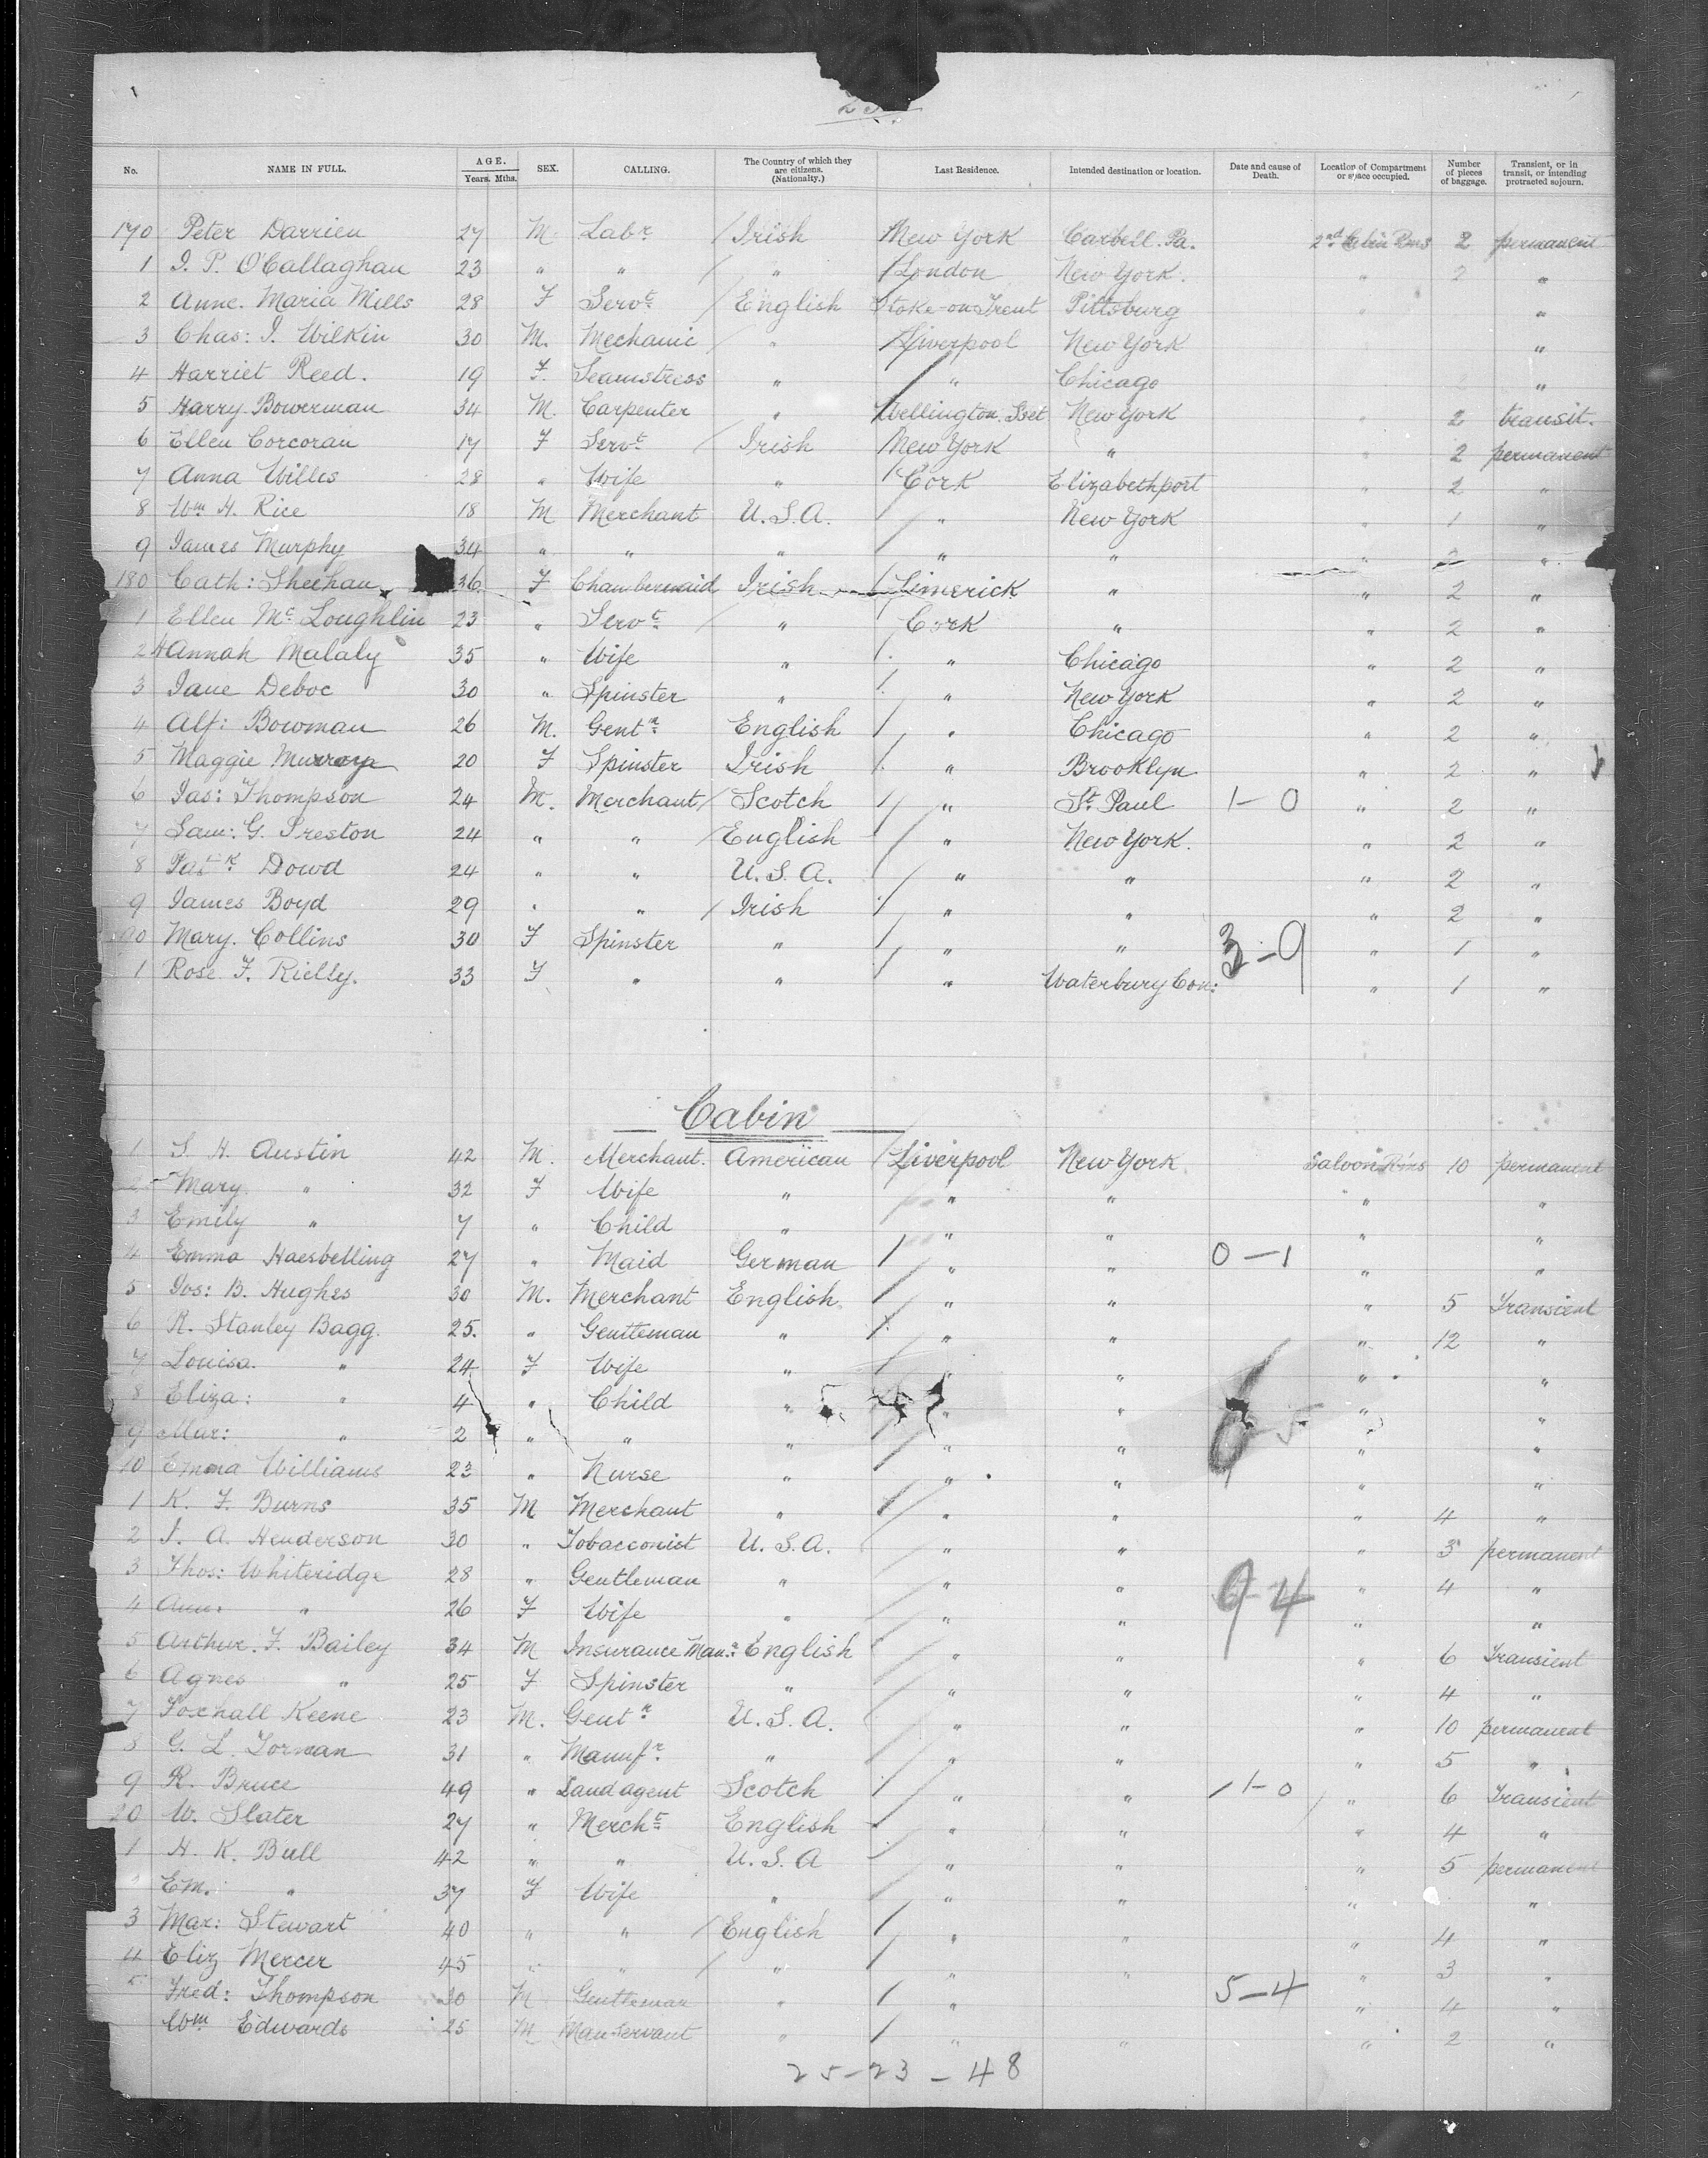 No. NAME IN FULL. AGE. Years. Mths. SEX. CALLING. The Country of which they are citizens. (Nationalty.) Last Residence. Intended destination or location. Date and cause of Death. Location of Compartment or space occupied. Number of pieces of baggage. Transient, or in transit, or intending protracted sojourn.
170 Peter Darrien 27 M Labr Irish New York Carbell. Pa. 2nd Cabin Rms 2 permanent
1 J. P. O'Callaghan 23 " " " London New York. " 2 "
2 Anne. Maria Mills 28 F Servt English Stoke-on Trent Pittsburg "
3 Chas: J. Wilkin 30 M. Mechanic " Liverpool New York "
4 Harriet Reed. 19 F. Seamstress " " Chicago "
5 Harry Bowerman 34 M. Carpenter " Wellington. Sset New York 2 transit.
6 Ellen Corcoran 17 F Servt Irish New York " 2 permanent
7 Anna Willis 28 " Wife " Cork Elizabethport " 2 "
8 Wm H. Rice 18 M Merchant U.S.A. " New York " 1 "
9 James Murphy 34 " " " " " " 2 "
180 Cath: Sheehan 36 F Chambermaid Irish Limerick " " 2 "
1 Ellen Mc Loughlin 23 " Servt " Cork " " 2 "
2 Hannah Malaly 35 " Wife " " Chicago " 2 "
3 Jane Deboc 30 " Spinster " " New York " 2 "
4 Alf: Bowman 26 M. Gentn English " Chicago " 2 "
5 Maggie Murray 20 F Spinster Irish " Brooklyn " 2 "
6 Jas: Thompson 24 M. Merchant Scotch " St. Paul 1-0 " 2 "
7 Sam: G. Preston 24 " " English " New York. " 2 "
8 Patk Dowd 24 " " U.S.A. " " " 2 "
9 James Boyd 29 " " Irish " " " 2 "
90 Mary. Collins 30 F Spinster " " " 3-9 " 1 "
1 Rose F. Rielly. 33 F " " " Waterbury Con: " 1 "
Cabin
1 S. H. Austin 42 M. Merchant. American Liverpool New York Saloon Rms 10 permanent
2 Mary " 32 F Wife " " " " "
3 Emily " 7 " Child " " " " "
4 Emma Haesbelling 27 " Maid German " " 0-1 " "
5 Jos: B. Hughes 30 M. Merchant English " " " 5 Transient
6 R. Stanley Bagg. 25. " Gentleman " " " " 12 "
7 Louisa. " 24 F Wife " " " " "
8 Eliza: " 4 " Child " " " " "
9 Mar: " 2 " " " " " " "
10 Emma Williams 23 " Nurse " " " " "
1 K. F. Burns 35 M Merchant " " " " 4 "
2 J. A. Henderson 30 " Tobacconist U.S.A. " " " 3 permanent
3 Thos: Whiteridge 28 " Gentleman " " " 9-4 " 4 "
4 Ann: " 26 F Wife " " " " "
5 Arthur. F. Bailey 34 M Insurance Manr: English " " " 6 Transient
6 Agnes " 25 F Spinster " " " " 4 "
7 Foxhall Keene 23 M. Gentn U.S.A. " " " 10 permanent
8 G. L. Torman 31 " Manufr. " " " " 5 "
9 R. Bruce 49 " Land agent Scotch " " 1-0 " 6 Transient
20 W. Slater 27 " Mercht English " " " 4 "
1 H. K. Bull 42 " " U.S.A " " " 5 permanent
Em. " 37 F Wife " " " " "
3 Mar: Stewart 40 " " English " " " 4 "
4 Eliz Mercer 45 " " " " " " 3 "
5 Fred: Thompson 30 M Gentleman " " 5-4 " 4 "
Wm Edwards 25 M Man Servant " " " " 2 "
25-23-48